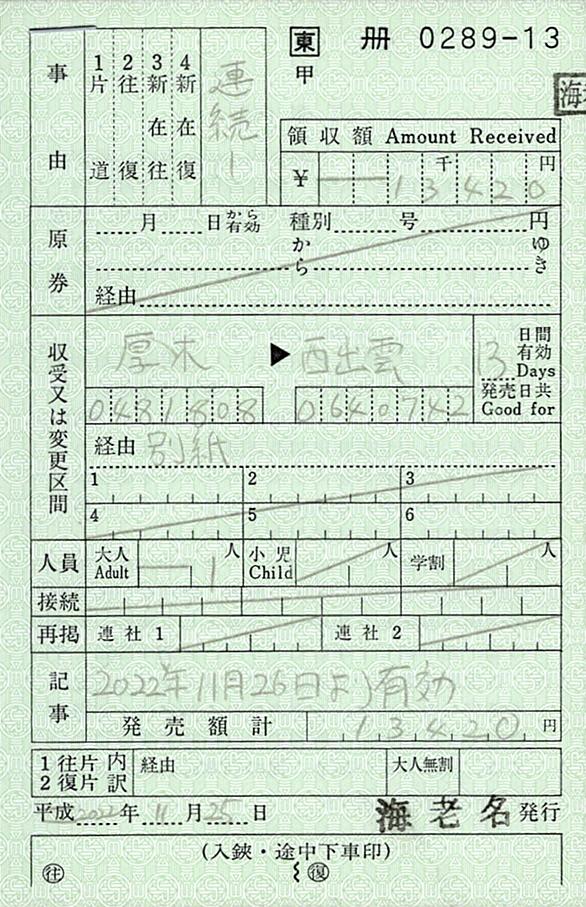 東 冊 0289-13
甲
海
事由
1 片道
2 往復
3 新在往
4 新在復
連続1
領収額 Amount Received
¥ 13420 千 円
原券
月 日から有効 種別 号 円
から ゆき
経由
収受又は変更区間
厚木 ▶ 西出雲
13 日間有効 Days
発売日共 Good for
0481808 0640742
経由 別紙
1 2 3
4 5 6
人員 大人 Adult 1人 小児 Child 人 学割 人
接続
再掲 連社1 連社2
記事
2022年11月26日より有効
発売額計 13420円
1往片 2復片 内訳 経由 大人無割
平成 2022年 11月25日 海老名 発行
(入鋏・途中下車印)
往 復